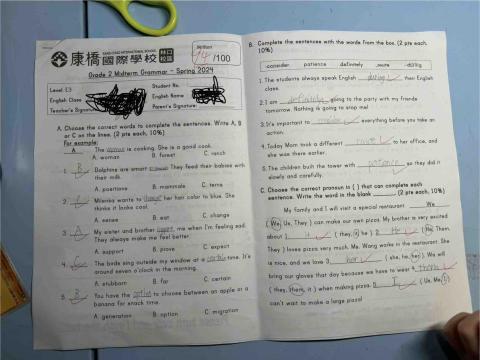 KANG CHIAO INTERNATIONAL SCHOOL
康橋國際學校 林口校區
Written
94 /100
Grade 2 Midterm Grammar - Spring 2024
Level: E3
Student No.
English Class
English Name
Teacher's Signature
Parent's Signature:
A. Choose the correct words to complete the sentences. Write A, B
or C on the lines. (2 pts each, 10%)
For example:
A The woman is cooking. She is a good cook.
A. woman B. forest C. ranch
1. B Dolphins are smart They feed their babies with
their milk.
A. positions B. mammals C. terms
2. Milenka wants to change her hair color to blue. She
thinks it looks cool.
A. eese B. eat C. change
3. A My sister and brother support me when I'm feeling sad.
They always make me feel better.
A. support B. prove C. expect
4. C The birds sing outside my window at a certain time. It's
around seven o'clock in the morning.
A. stubborn B. far C. certain
5. B You have the option to choose between an apple or a
banana for snack time.
A. generation B. option C. migration
B. Complete the sentences with the words from the box. (2 pts each,
10%)
consider patience definitely route during
1. The students always speak English during their English
class.
2. I am definitely going to the party with my friends
tomorrow. Nothing is going to stop me!
3. It's important to consider everything before you take an
action.
4. Today Mom took a different route to her office, and
she was there earlier.
5. The children built the tower with patience so they did it
slowly and carefully.
C. Choose the correct pronoun in ( ) that can complete each
sentence. Write the word in the blank (2 pts each, 10%)
My family and I will visit a special restaurant. We
(We, Us, They) can make our own pizza. My brother is very excited
about 1. it (they, it, he) 2. He (He, Them,
They) loves pizza very much. Ms. Wang works in the restaurant. She
is nice, and we love 3. her (she, he, her). We will
bring our gloves that day because we have to wear 4. them
(they, them, it) when making pizza. 5. I (Us, Me, I)
can't wait to make a large pizza!